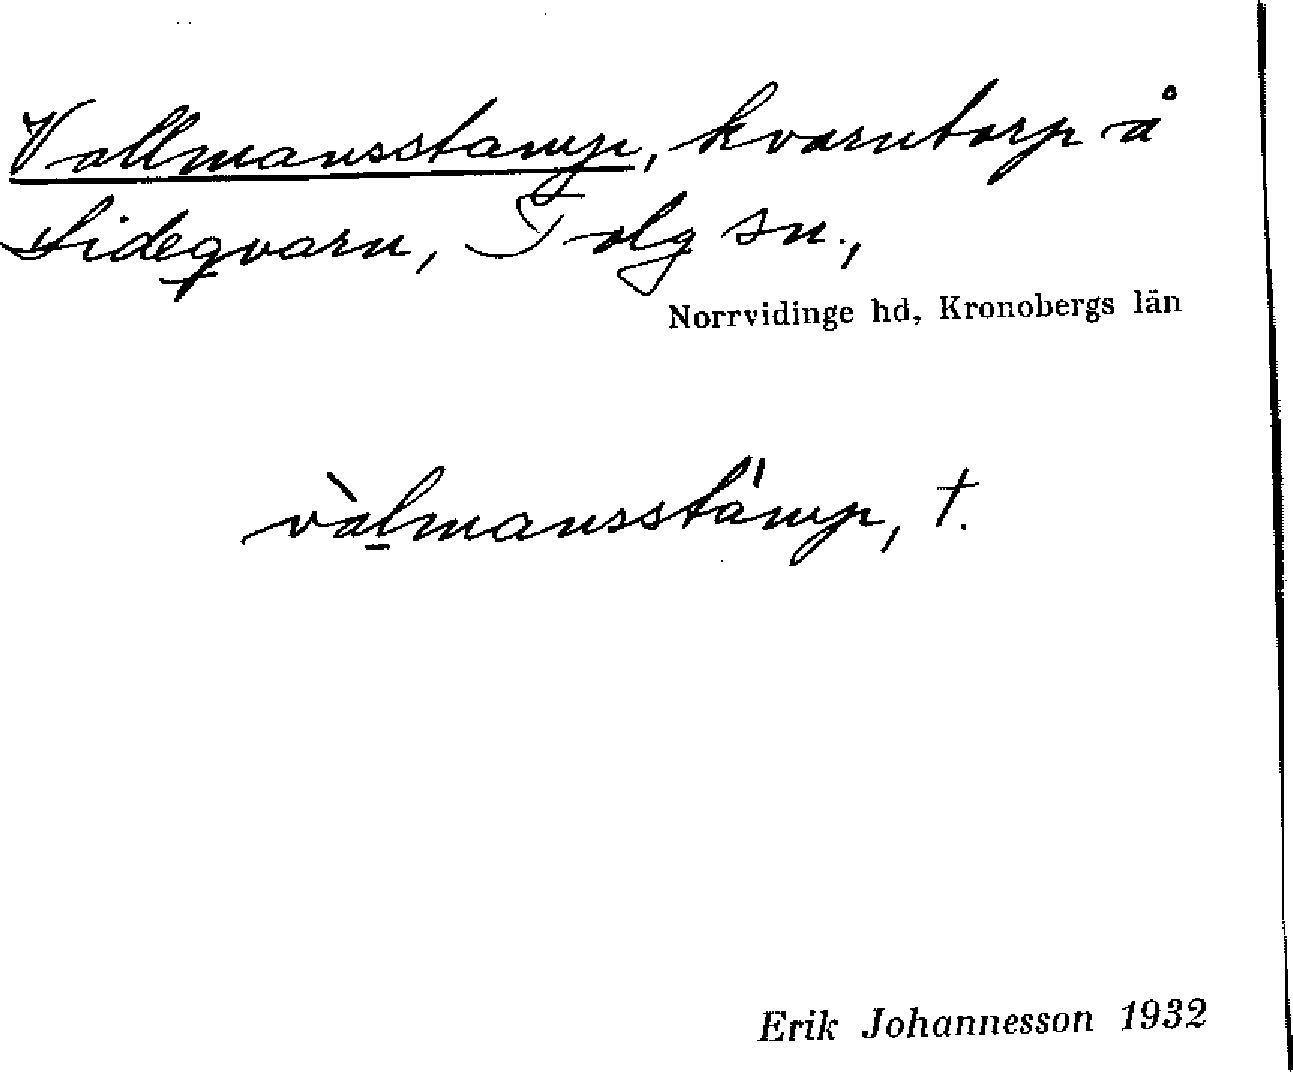 Vallmansstamp, kvarntorp å
Sideqvarn, Tolg sn.,
Norrvidinge hd, Kronobergs län
vàl̲mansstámp, †.
Erik Johannesson 1932